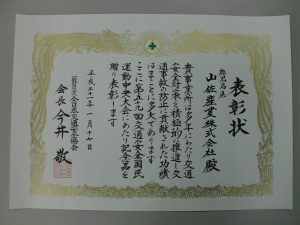 表彰状
鹿児島県
山佐産業株式会社殿
貴事業所は多年にわたり交通
安全対策を積極的に推進し交
通事故の防止に貢献された功績
はまことに多大であります
ここに第五十九回交通安全国民
運動中央大会にあたり記念品を
贈り表彰します
平成三十一年一月十七日
一般財団法人全日本交通安全協会
会長 今井 敬